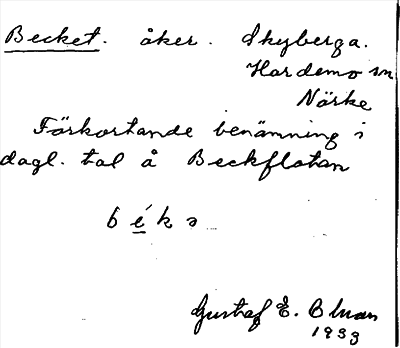 Becket. åker. Skyberga.
Hardemo sn
Närke
Förkortande benämning i
dagl. tal å Beckflotan
béks
Gustaf E. Olman
1933